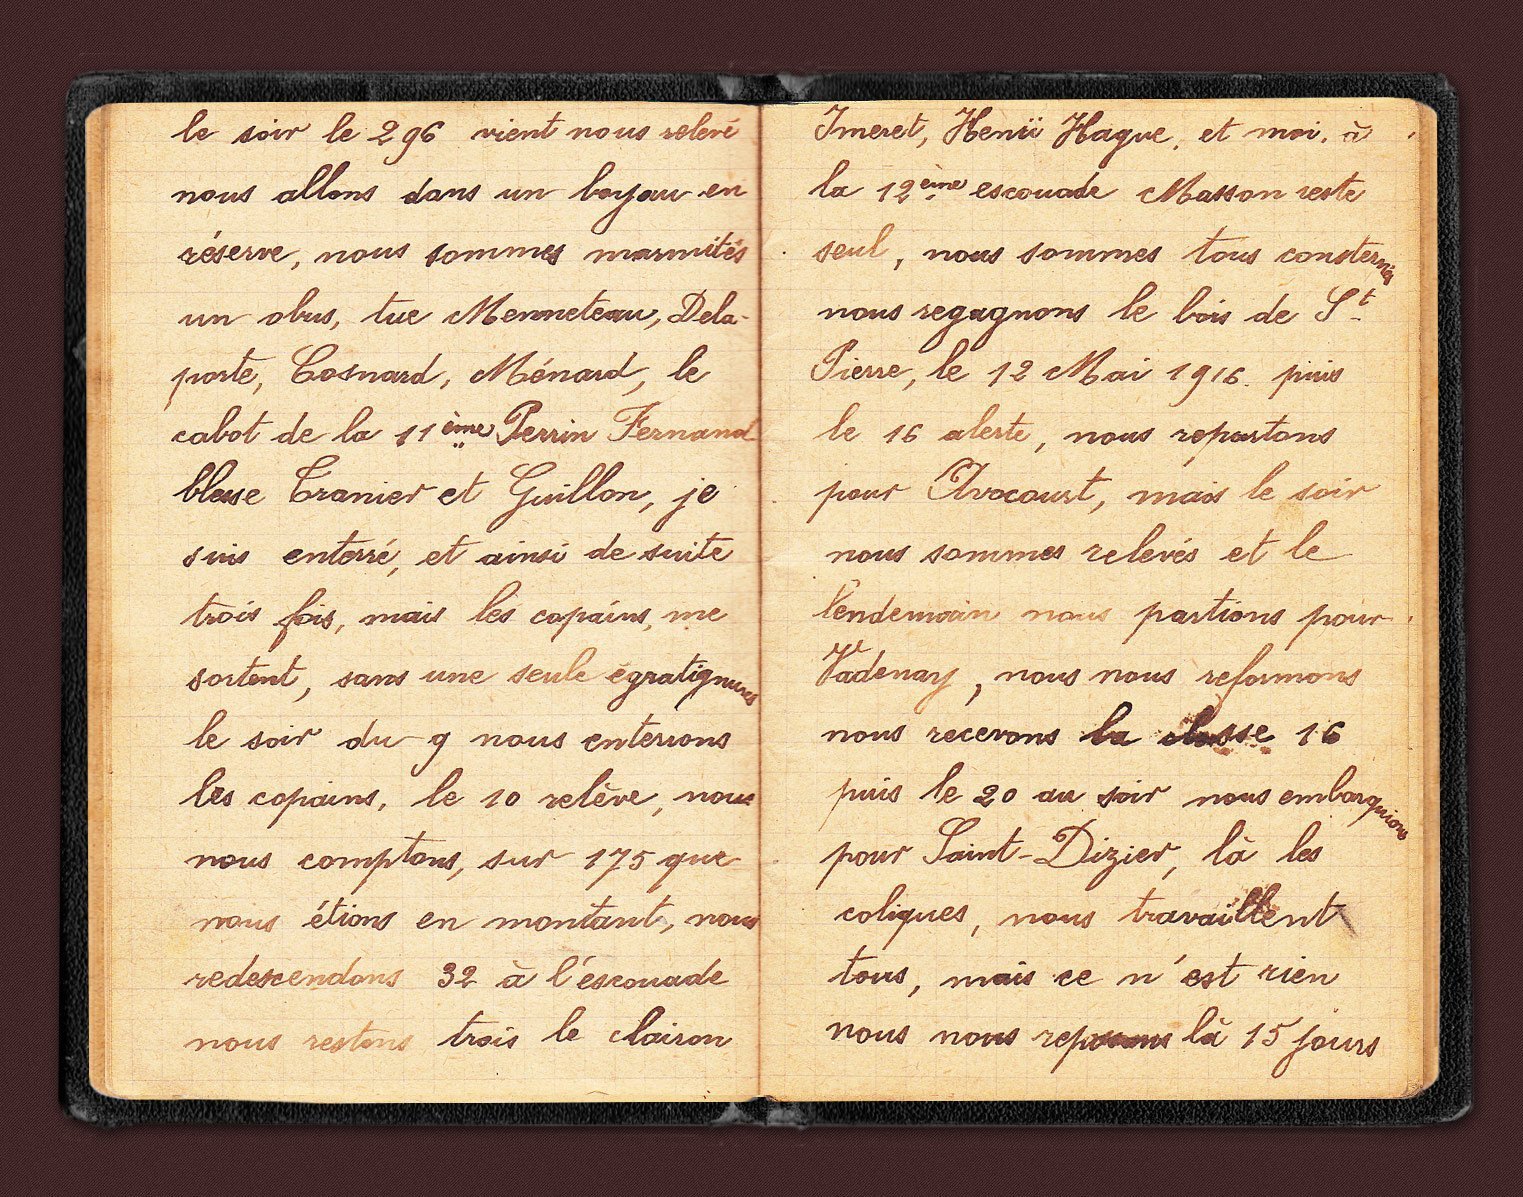 le soir le 296 vient nous relevé
nous allons dans un boyau en
réserve, nous sommes marmités
un obus, tue Menneteau, Dela-
porte, Cosnard, Ménard, le
cabot de la 11ème Perrin Fernand
blesse Tranier et Guillon, je
suis enterré, et ainsi de suite
trois fois, mais les copains, me
sortent, sans une seule égratignures
le soir du 9 nous enterrons
les copains, le 10 relève, nous
nous comptons, sur 175 que
nous étions en montant, nous
redescendons 32 à l'escouade
nous restons trois le clairon
Imeret, Henri Hague, et moi, à
la 12ème escouade Masson reste
seul, nous sommes tous consternés
nous regagnons le bois de St
Pierre, le 12 Mai 1916. puis
le 16 alerte, nous repartons
pour Avocourt, mais le soir
nous sommes relevés et le
lendemain nous partions pour
Vadenay, nous nous reformons
nous recevons la classe 16
puis le 20 au soir nous embarquions
pour Saint-Dizier, là les
coliques, nous travaillent
tous, mais ce n'est rien
nous nous reposons là 15 jours